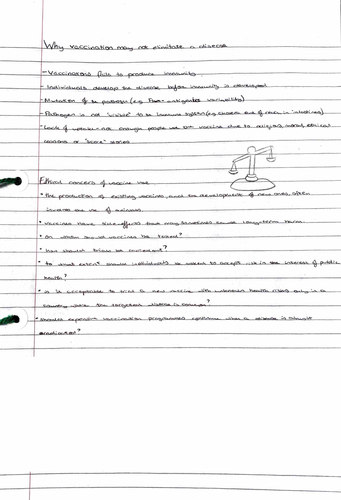 Why vaccination may not eliminate a disease
- Vaccinations fails to produce immunity
- Individuals develop the disease before immunity is developed
- Mutation of the pathogen (e.g. Flu - antigenic variability)
- Pathogen is not 'visible' to the immune system (e.g. cholera out of reach in intestines)
- Lack of uptake - not enough people use the vaccine due to religious, moral, ethical
reasons or 'scare' stories
Ethical concerns of vaccine use
• The production of existing vaccines, and the development of new ones, often
involves the use of animals
• vaccines have side effects that may sometimes cause long-term harm
• on whom should vaccines be tested?
• how should trials be conducted?
• to what extent should individuals be asked to accept risk in the interest of public
health?
• is it acceptable to trial a new vaccine with unknown health risks only in a
country where the targeted disease is common?
• should expensive vaccination programmes continue when a disease is almost
eradicated?